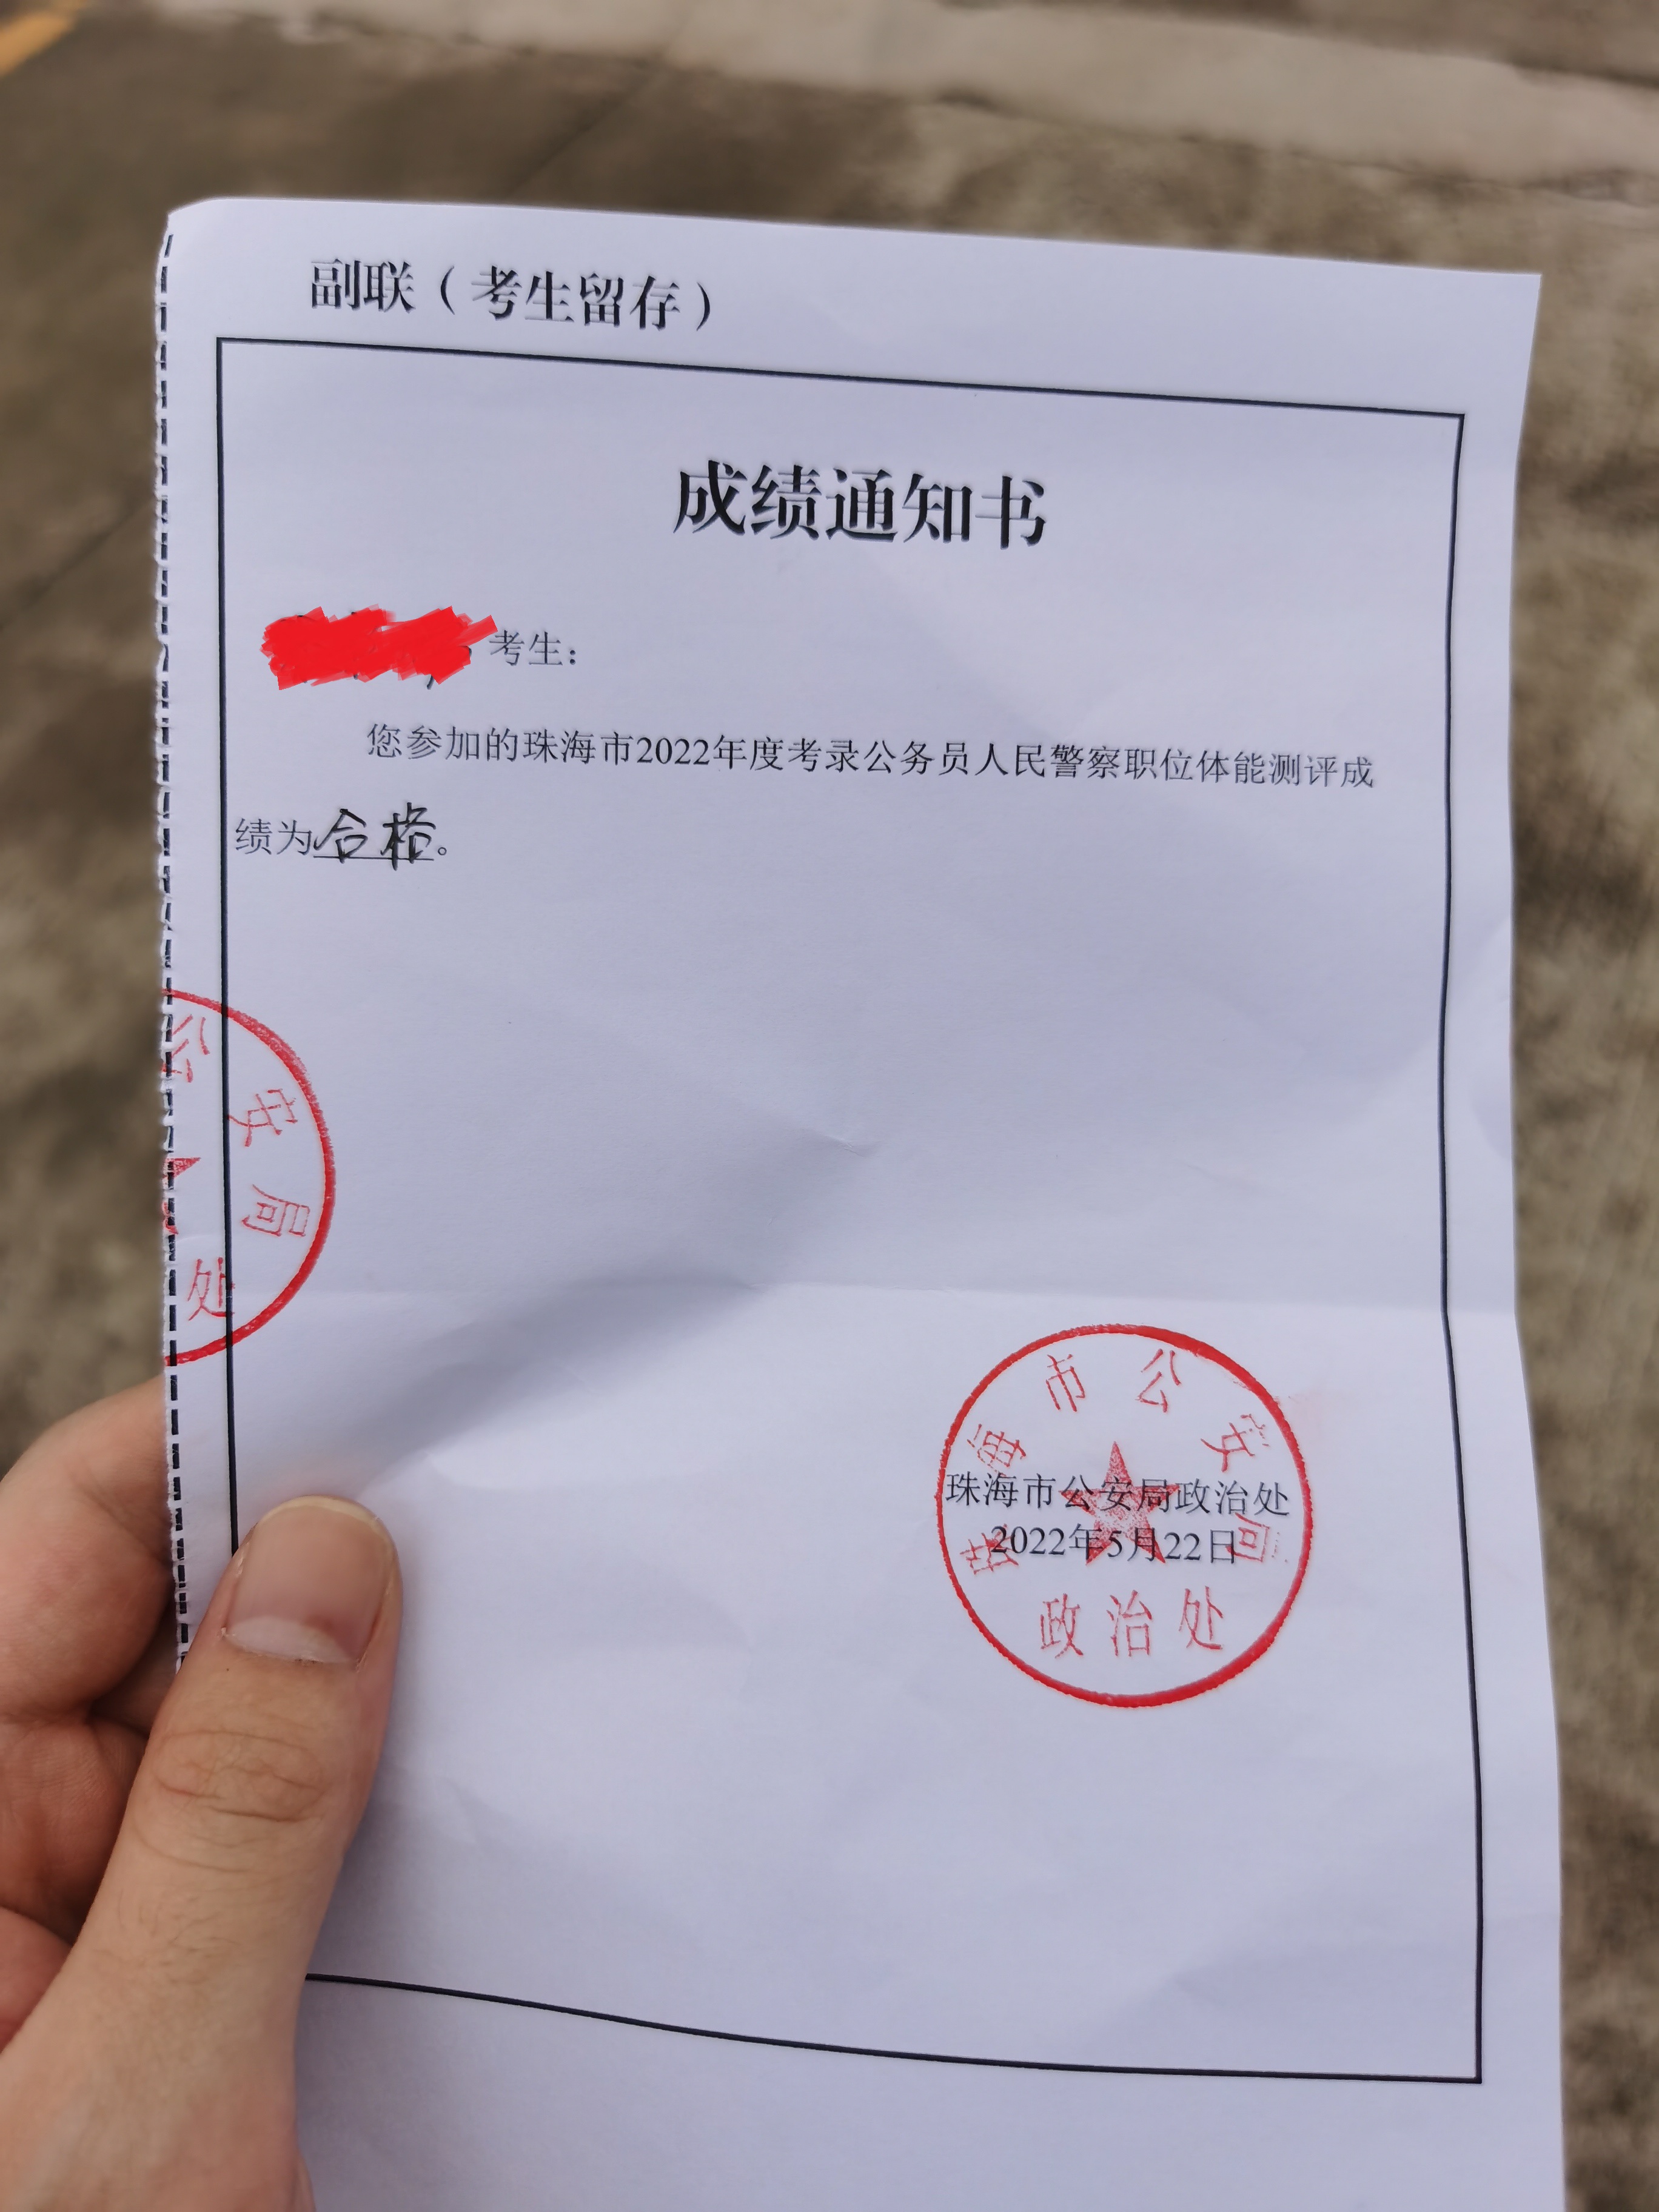 副联（考生留存）
成绩通知书
考生：
您参加的珠海市2022年度考录公务员人民警察职位体能测评成
绩为合格。
公安局
处
珠海市公安局
珠海市公安局政治处
2022年5月22日
政治处